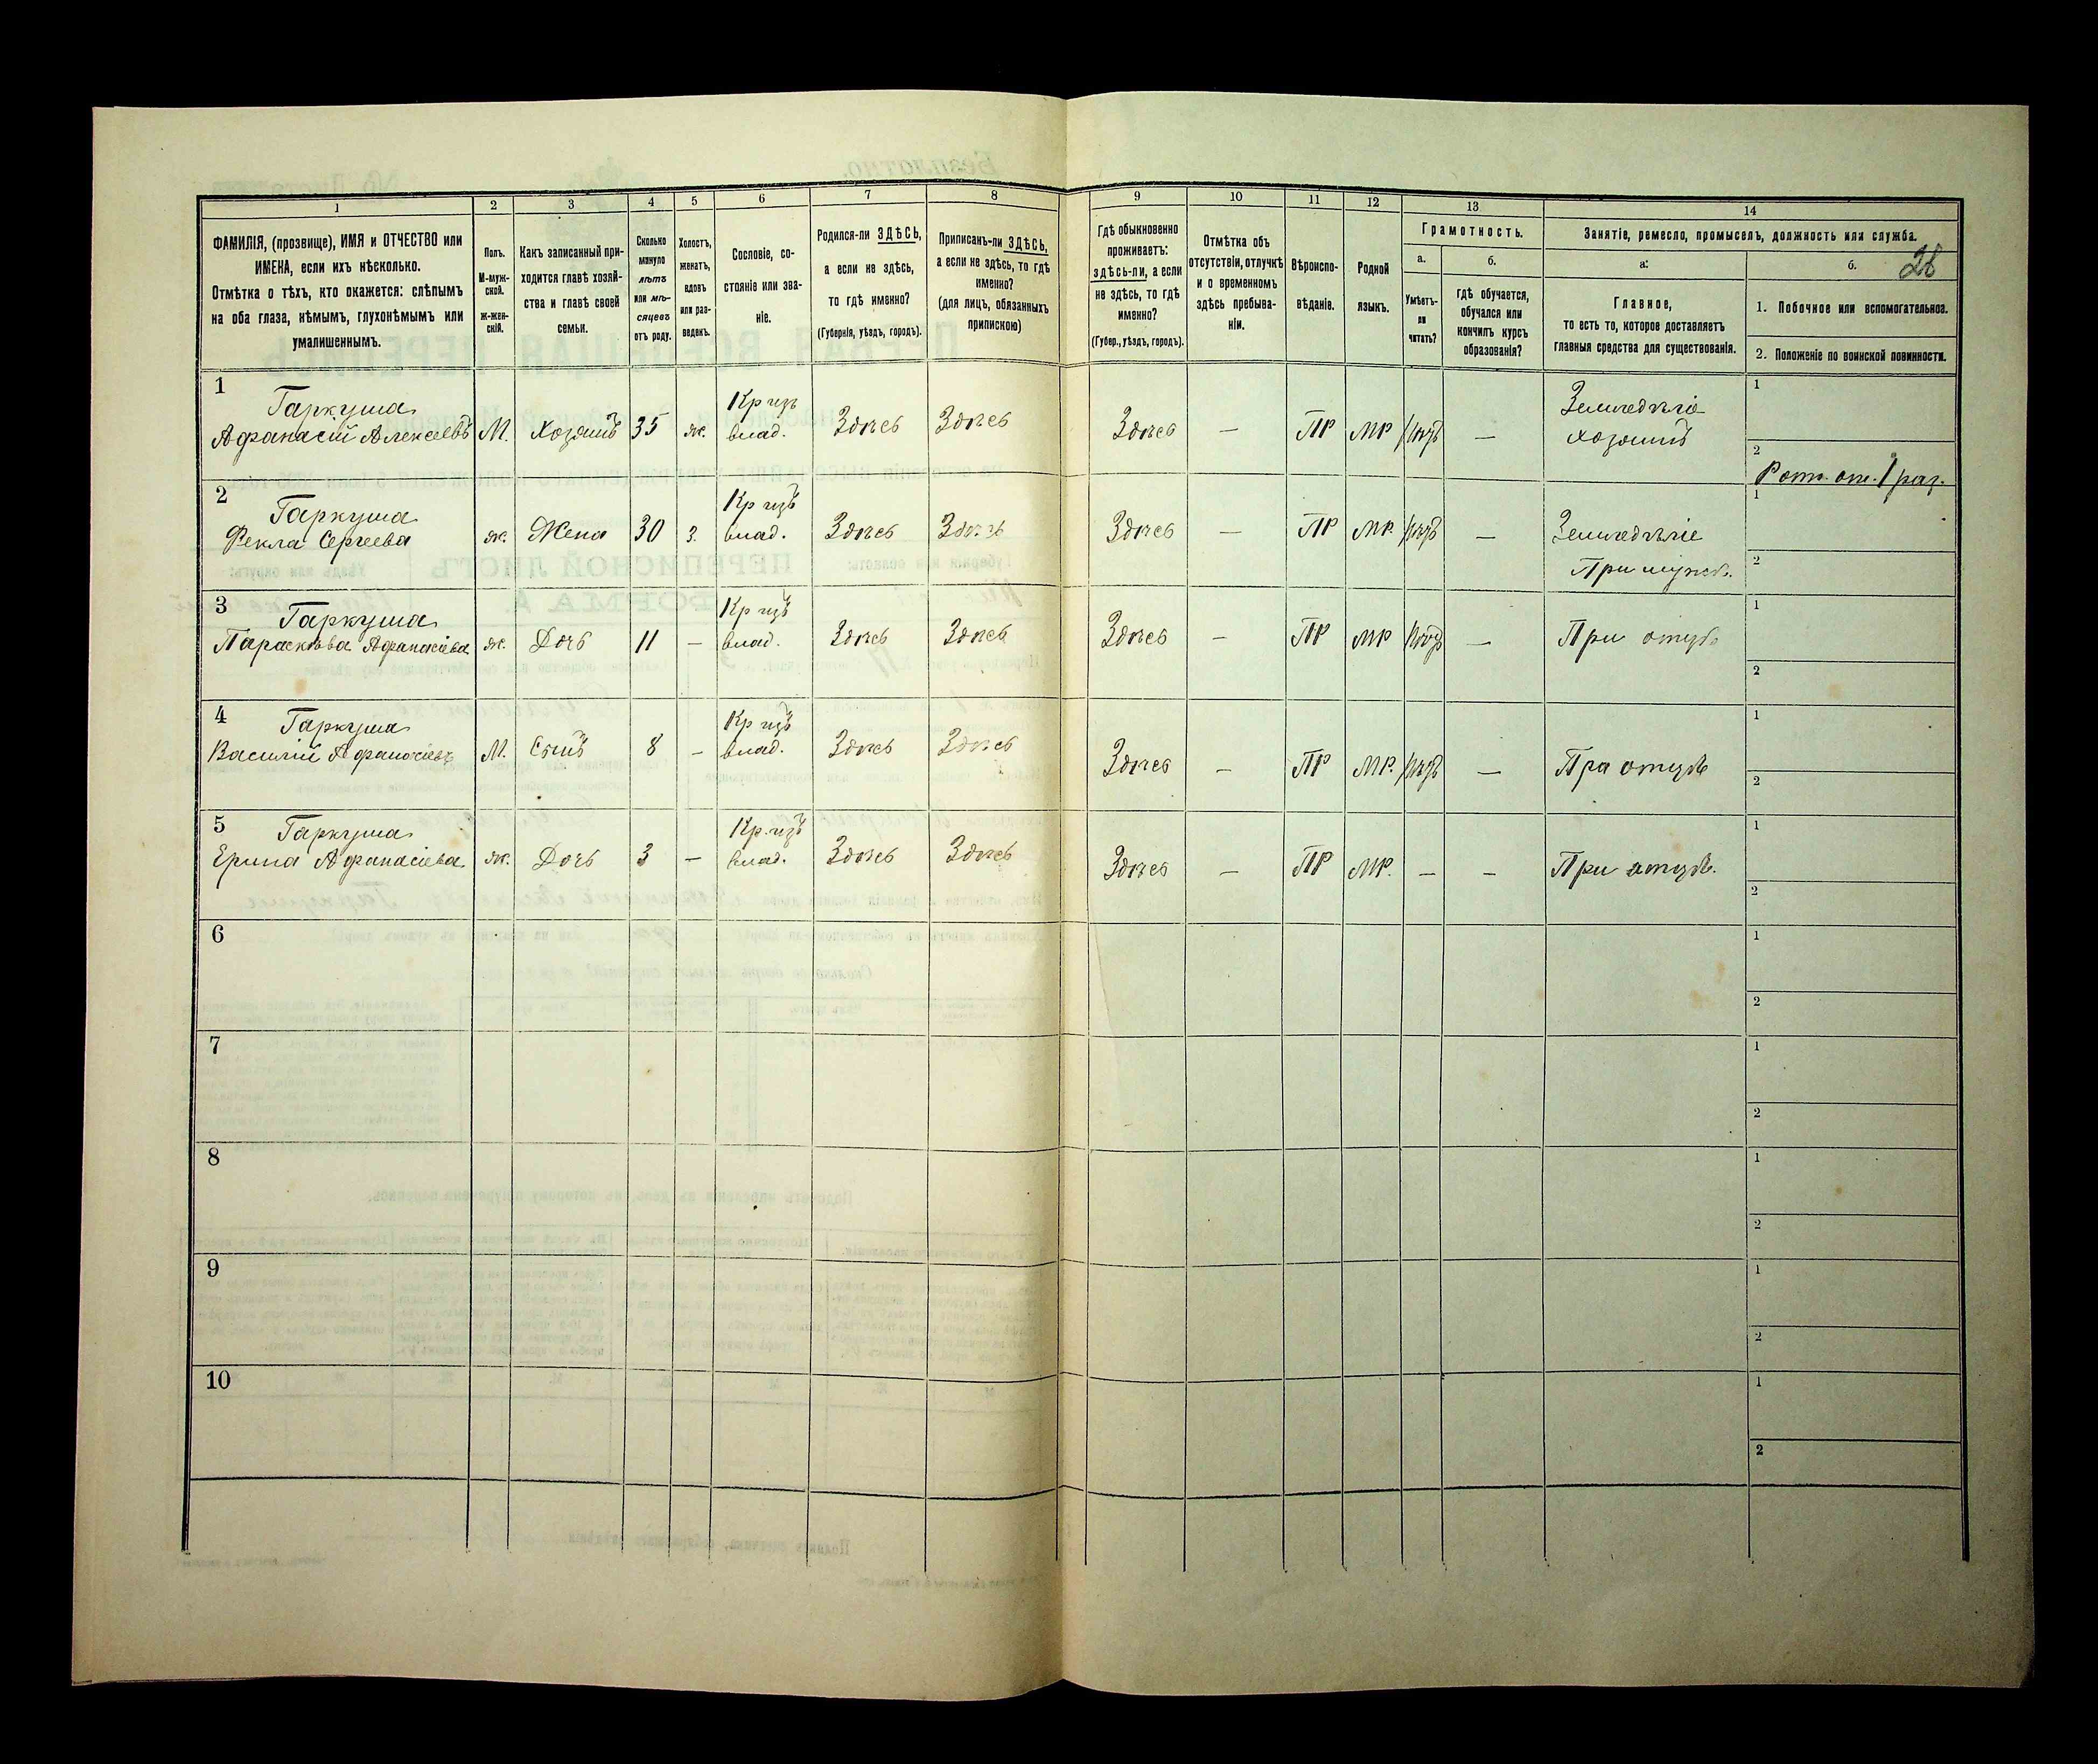 1 2 3 4 5 6 7 8 9 10 11 12 13 14
ФАМИЛІЯ, (прозвище), ИМЯ и ОТЧЕСТВО или
ИМЕНА, если ихъ нѣсколько.
Отмѣтка о тѣхъ, кто окажется: слѣпымъ
на оба глаза, нѣмымъ, глухонѣмымъ или
умалишеннымъ.
Полъ.
М-муж-
ской.
Ж-жен-
скій.
Какъ записанный при-
ходится главѣ хозяй-
ства и главѣ своей
семьи.
Сколько
минуло
лѣтъ
или мѣ-
сяцевъ
отъ роду.
Холостъ,
женатъ,
вдовъ
или раз-
веденъ.
Сословіе, со-
стояніе или зва-
ніе.
Родился-ли ЗДѢСЬ,
а если не здѣсь,
то гдѣ именно?
(Губернія, уѣздъ, городъ).
Приписанъ-ли ЗДѢСЬ,
а если не здѣсь, то гдѣ
именно?
(для лицъ, обязанныхъ
припискою)
Гдѣ обыкновенно
проживаетъ:
здѣсь-ли, а если
не здѣсь, то гдѣ
именно?
(Губер., уѣздъ, городъ).
Отмѣтка объ
отсутствіи, отлучкѣ
и о временномъ
здѣсь пребыва-
ніи.
Вѣроиспо-
вѣданіе.
Родной
языкъ.
Грамотность.
а.
Умѣетъ-
ли
читать?
б.
Гдѣ обучается,
обучался или
кончилъ курсъ
образованія?
Занятіе, ремесло, промыселъ, должность или служба.
а.
Главное,
то есть то, которое доставляетъ
главныя средства для существованія.
б. 28
1. Побочное или вспомогательное.
2. Положеніе по воинской повинности.
1 Гаркуша Кр изъ Земледѣліе 1
Афанасій Алексеевъ М. Хозяинъ 35 ж. влад. Здѣсь Здѣсь Здѣсь — ПР МР Нѣтъ — хозяинъ
2 Ратн. оп. 1 раз.
2 Гаркуша Кр изъ 1
Фекла Сергеева ж. Жена 30 З. влад. Здѣсь Здѣсь Здѣсь — ПР МР. Нѣтъ — Земледѣліе
При мужѣ. 2
3 Гаркуша Кр изъ 1
Парасковва Афанасіева ж. Дочь 11 — влад. Здѣсь Здѣсь Здѣсь — ПР МР Нѣтъ — При отцѣ
2
4 Гаркуша Кр изъ 1
Василій Афанасіевъ М. Сынъ 8 — влад. Здѣсь Здѣсь Здѣсь — ПР МР. Нѣтъ — При отцѣ
2
5 Гаркуша Кр. изъ 1
Ерина Афанасіева ж. Дочь 3 — влад. Здѣсь Здѣсь Здѣсь — ПР МР. — — При отцѣ.
2
6 1
2
7 1
2
8 1
2
9 1
2
10 1
2